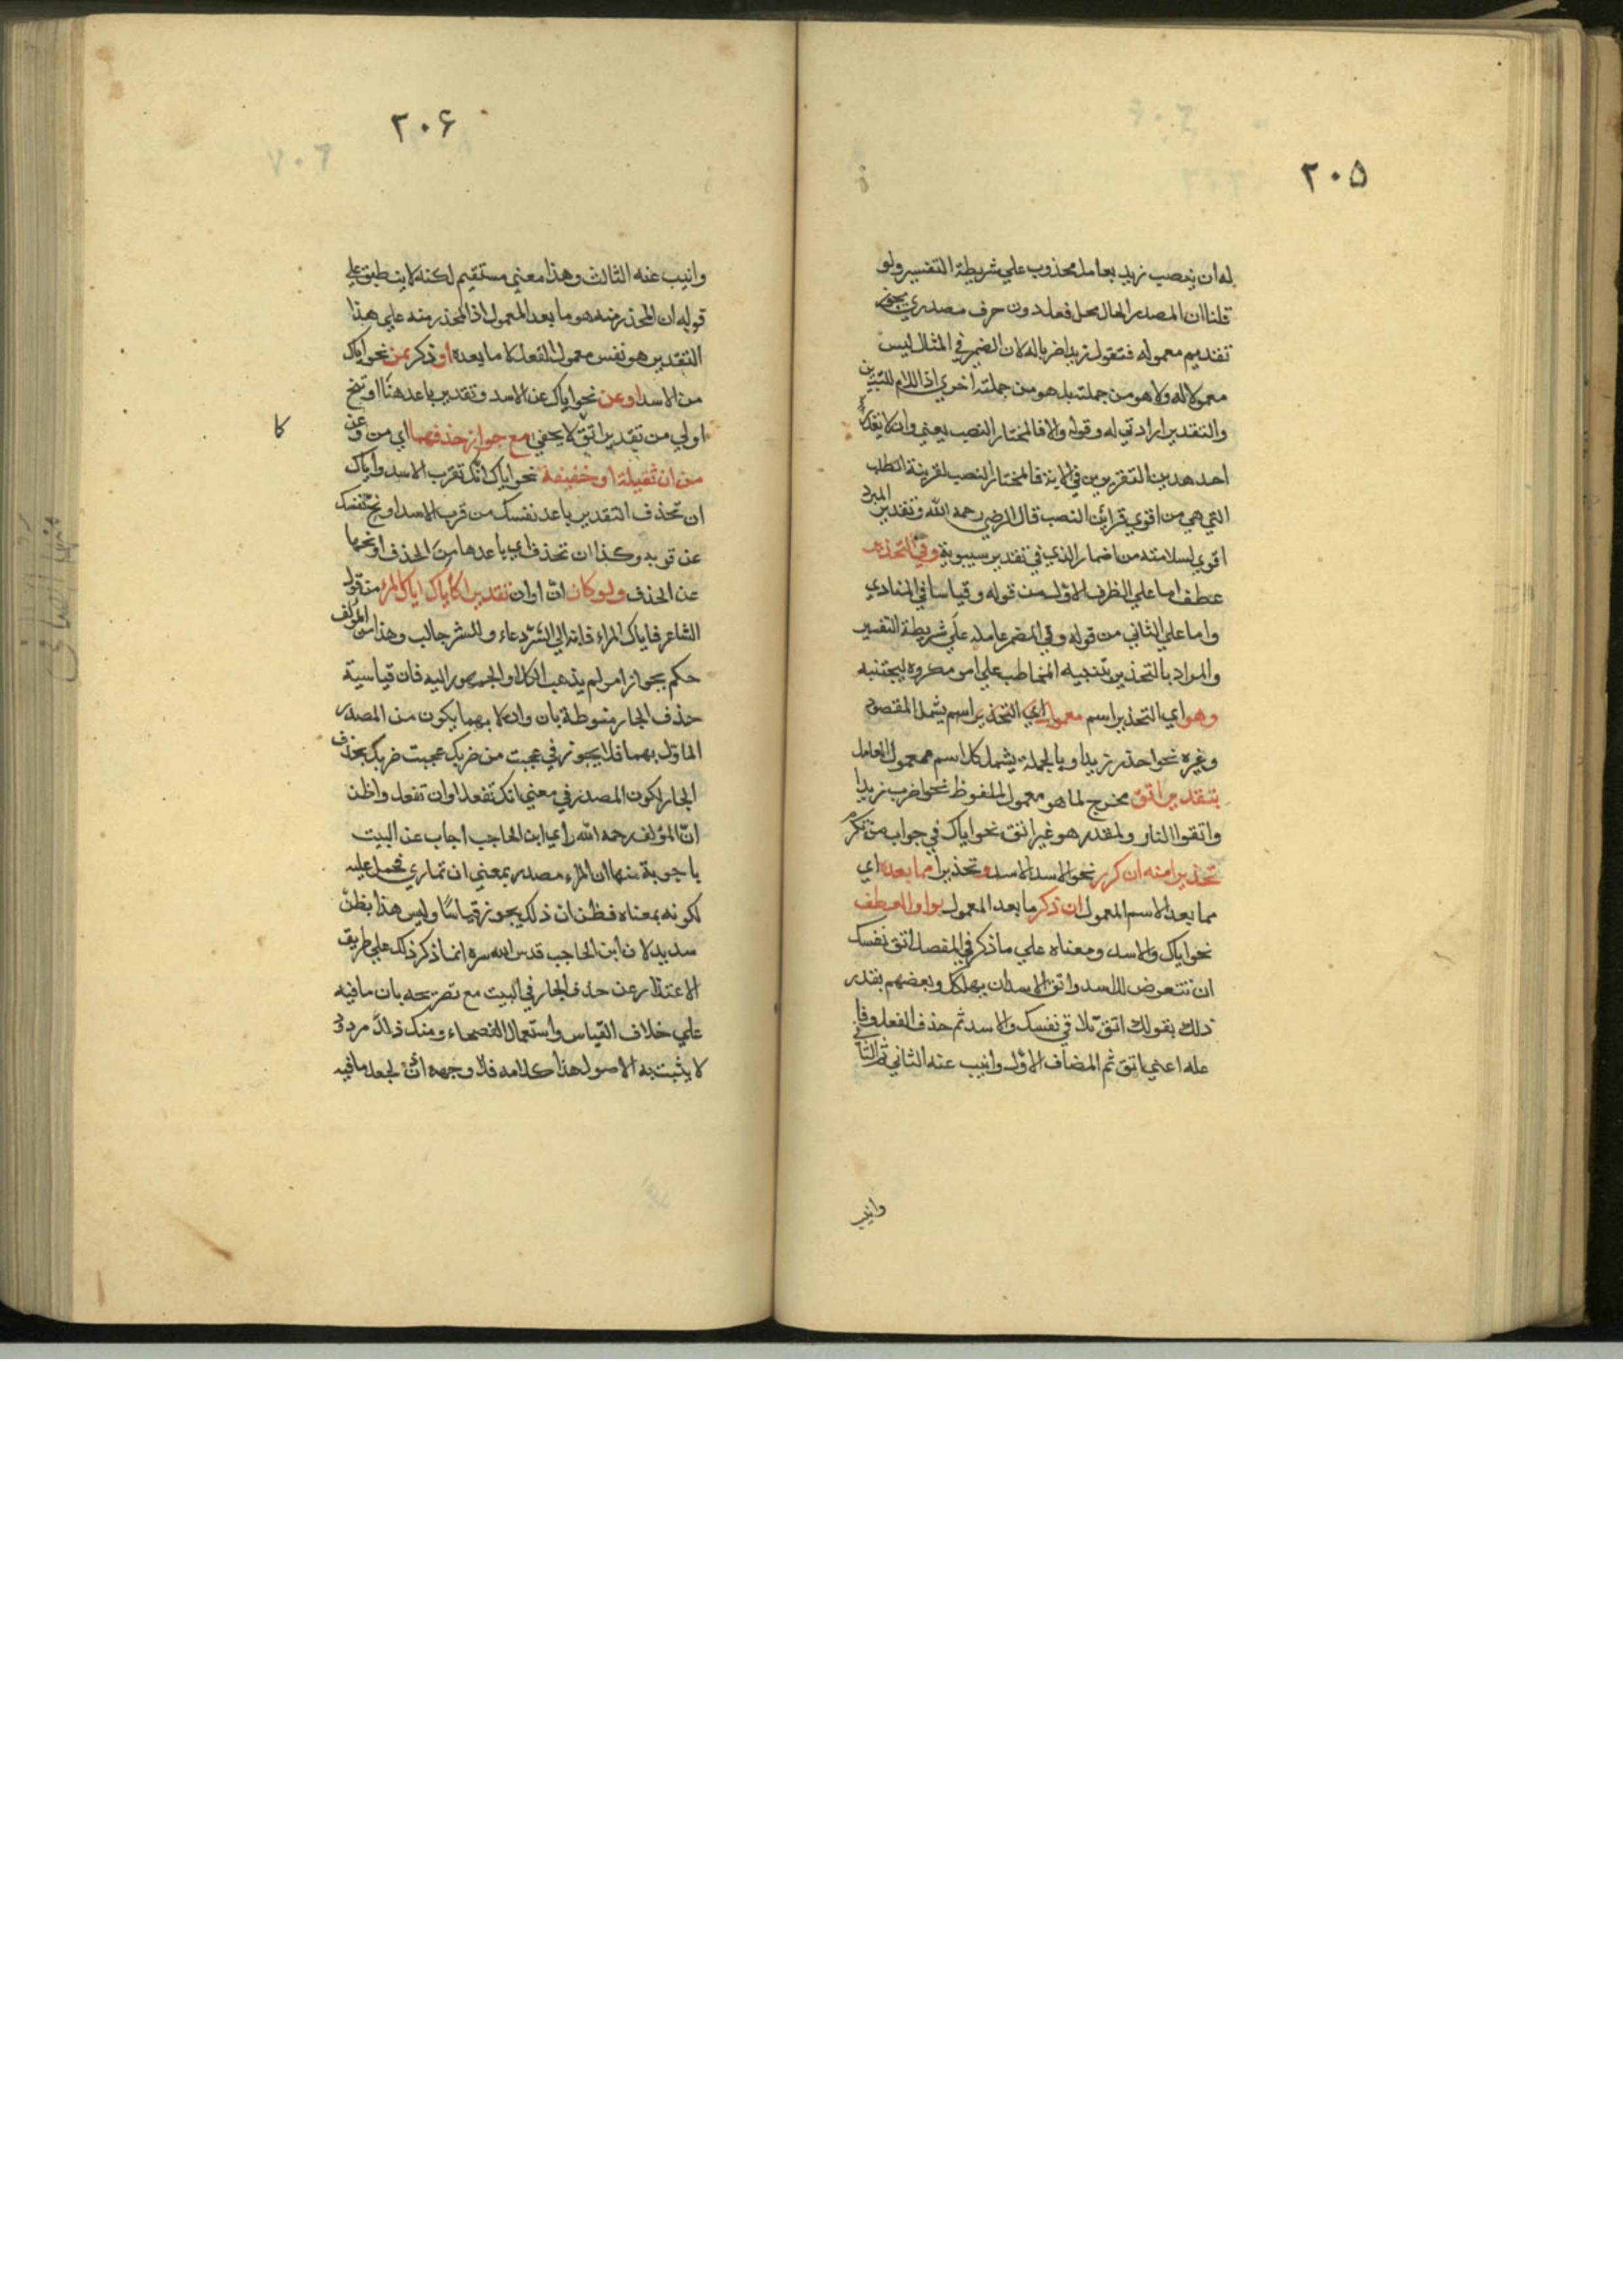 ٢٠٥
له ان ينصب زيد بعامل محذوب علي شريطة التفسير ولو
قلنا ان المصدر الحال محل فعله دون حرف مصدري يجوز
تقديم معموله فتقول زيدا ضربا له لان الضمير في المثال ليس
معمولا له ولا هو من جملته بل هو من جملته اخري اذ اللام للتبيين
والتقدير ارادتي له وقوله والا فالمختار النصب يعني وان لا يقدر
احد هدين التقريرين في الاية فالمختار النصب لقرينة الطلب
التي هي من اقوي قرائن النصب قال الرضي رحمه الله وتقدير المبرد
اقوي لسلامته من اضمار الذي في تقدير سيبوية وفي التحذير
عطف اما علي الظرف الاول من قوله وقياسا في المنادي
واما علي الثاني من قوله وفي المضمر عامله علي شريطة التفسير
والمراد بالتحذير تنبيه المخاطب علي امر مكروه ليجتنبه
وهو اي التحذير اسم معمول اي التحذير اسم يشمل المقصود
وغيره نحو احذر زيدا وبالجملة يشمل كل اسم معمول العامل
بتقدير اتق مخرج لما هو معمول الملفوظ نحو اضرب زيدا
واتقوا النار ولمقدر هو غير اتق نحو اياك في جواب من تكرم
تحذيرا منه ان كرر نحو الاسد الاسد وتحذيرا مما بعده اي
مما بعد الاسم المعمول ان ذكر ما بعد المعمول بواو العطف
نحو اياك والاسد ومعناه علي ما ذكر في المفصل اتق نفسك
ان تتعرض للاسد واتق الاسد ان يهلكك وبعضهم يقدر
ذلك بقولك اتق تلاقي نفسك والاسد ثم حذف الفعل وفا
عله اعني اتق ثم المضاف الاول وانيب عنه الثاني ثم الثاني
وانيب
٢٠۶
وانيب عنه الثالث وهذا معني مستقيم لكنه لا ينطبق علي
قوله ان المحذر منه هو ما بعد المعمول اذ المحذر منه علي هذا
التقدير هو نفس معمول الفعل لا ما بعده او ذكر بمن نحو اياك
من الاسد او عن نحو اياك عن الاسد وتقدير باعد هنا او تنح
اولي من تقدير اتق كما لا يخفي مع جواز حذفهما اي من وعن
من ان ثقيلة او خفيفة نحو اياك انك تقرب الاسد واياك
ان تحذف التقدير باعد نفسك من قرب الاسد او نح نفسك
عن قربه وكذا ان تحذف اي باعدها من الحذف او نحها
عن الحذف ولو كان ان او ان تقديرا كاياك اياك المرا من قول
الشاعر فاياك المراء فانه الي الشر دعاء وللشر جالب وهذا من المؤلف
حكم بجواز امر لم يذهب اولا والجمهور اليه فان قياسية
حذف الجار منوطة بان وان لا بهما يكون من المصدر
الماول بهما فلا يجوز في عجبت من ضربك عجبت ضربك بحذف
الجار لكون المصدر في معني انك تفعل او ان تفعل واظن
ان المؤلف رحمه الله راي ابن الحاجب اجاب عن البيت
باجوبة منها ان المراء مصدر بمعني ان تماري فحمل عليه
لكونه بمعناه فظن ان ذلك يجوز قياسًا وليس هذا بظن
سديد لان ابن الحاجب قدس الله سره انما ذكر ذلك علي طريق
الاعتذار عن حذف الجار في البيت مع تصريحه بان ما فيه
علي خلاف القياس واستعمال الفصحاء ومثل ذلك مردود
لا يثبت به الاصول هذا كلامه فلا وجه لجعل ما فيه